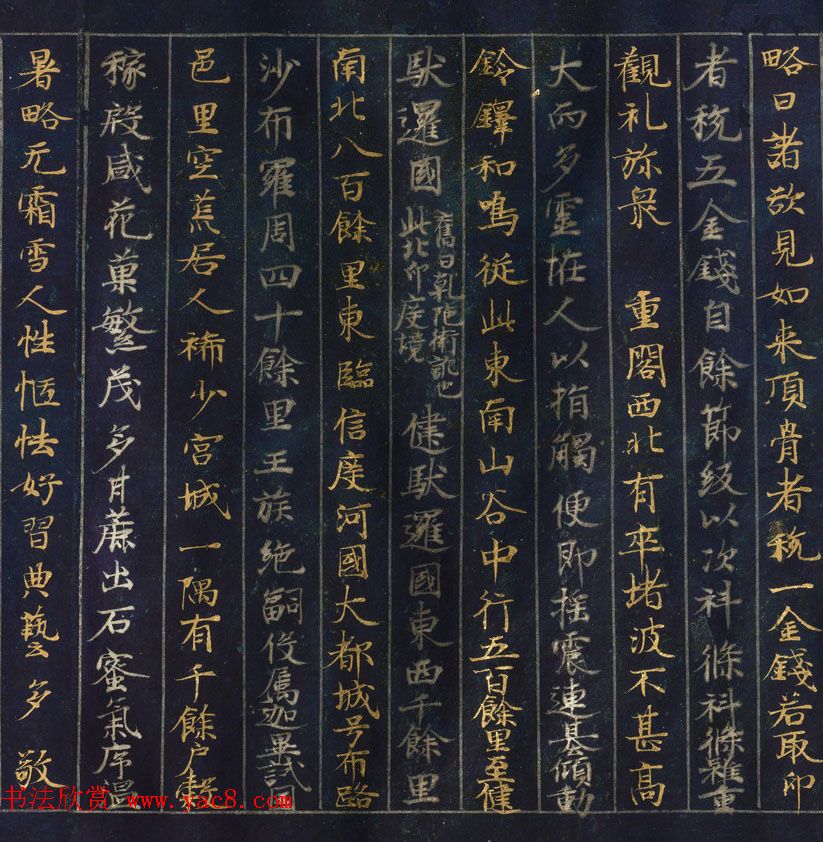 略曰諸欲見如来頂骨者稅一金錢若取印
者稅五金錢自餘節級以次科條科條雖重
觀礼弥衆　重閣西北有卒堵波不甚高
大而多靈恠人以指觸便即搖震連基傾動
鈴鐸和鳴從此東南山谷中行五百餘里至健
馱邏國
舊曰乹陁衛訛也
此北印度境
健馱邏國東西千餘里
南北八百餘里東臨信度河國大都城号布路
沙布羅周四十餘里王族絶嗣伇属迦畢試國
邑里空荒居人稀少宮城一隅有千餘户穀
稼殷盛花菓繁茂多甘蔗出石蜜氣序温
暑略无霜雪人性恇怯好習典藝多敬
书法欣赏 www.yac8.com